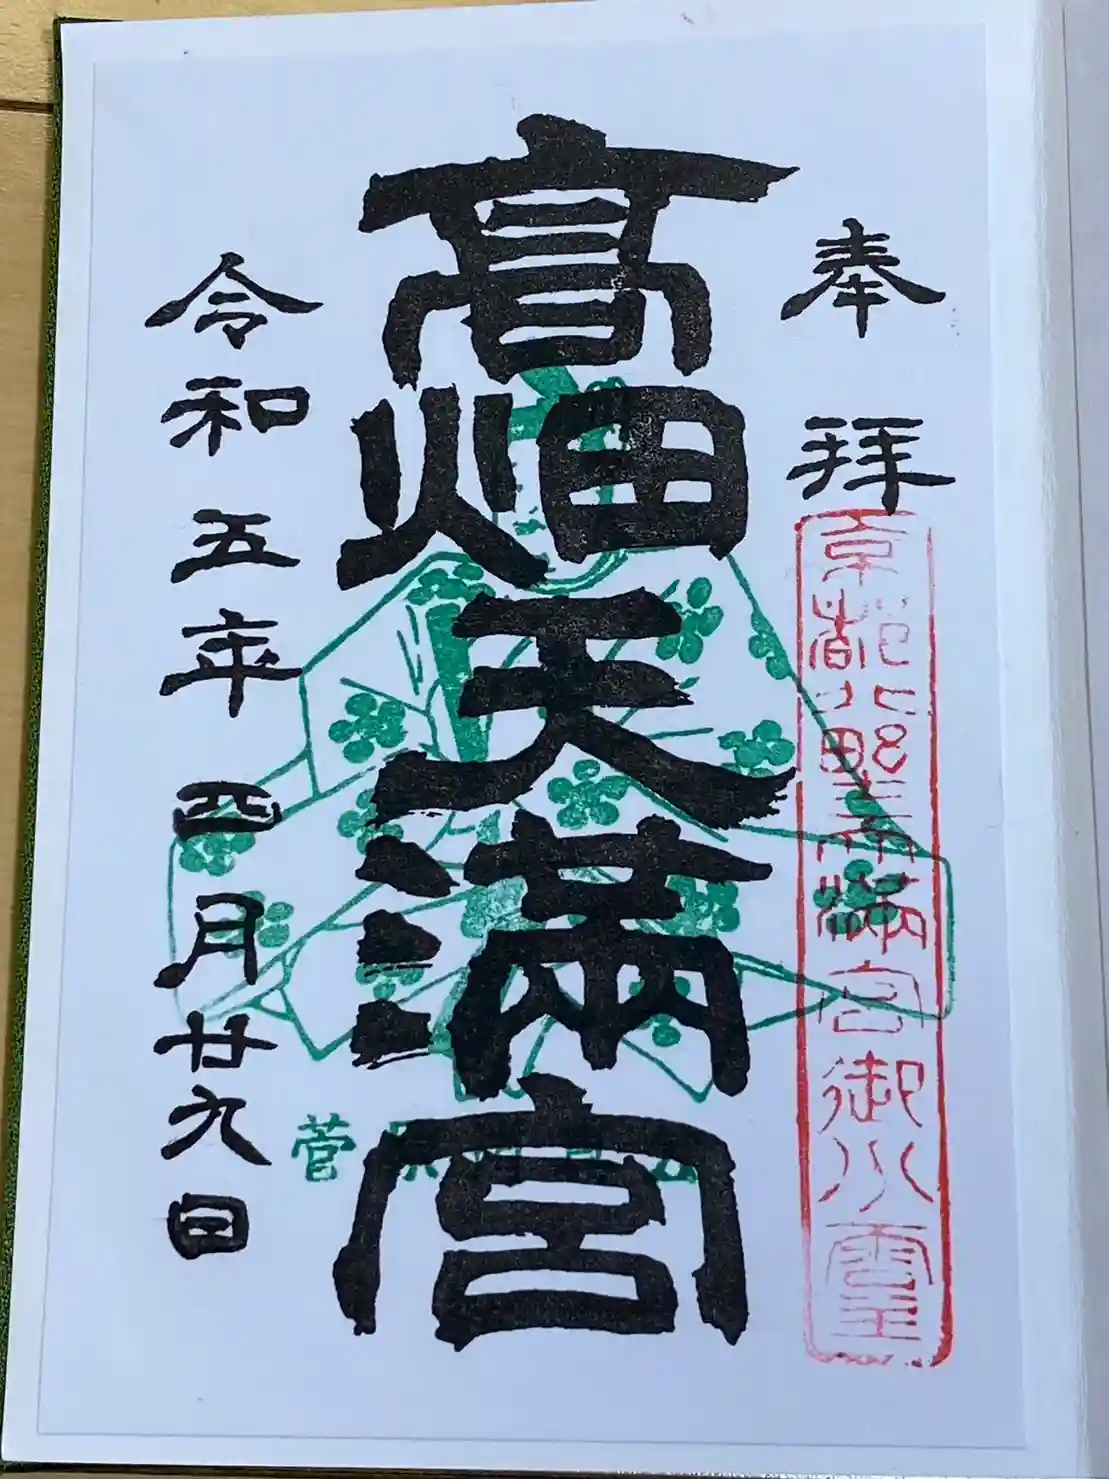 奉拝
京都北野天満宮御分霊
髙畑天満宮
菅原道真公
令和五年四月廿九日